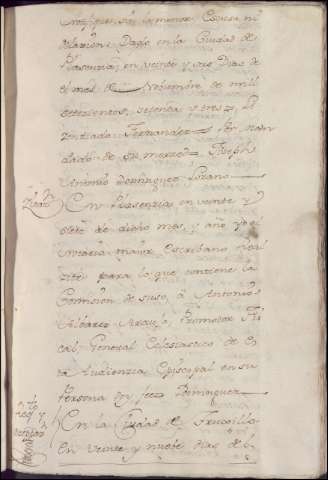 en la menor
Dado en la Ciudad de
Plasencia, en veinte y seis Dias de
el mes de Noviembre de mil
setecientos, setenta y tres
Fernandez Por man
dado de su merced Joseph
Antonio Dominguez Lozano
En Plasencia en veinte y
siete de dicho mes, y año yo el
Notario maior, escribano no
para lo que contiene la
Comision de suso, a Antonio
Araujo, Promotor Fis
cal General Eclesiastico de es
ta Audienzia Episcopal en su
Persona doy fee Dominguez
En la Ciudad de Truxillo
en veinte y nuebe dias de